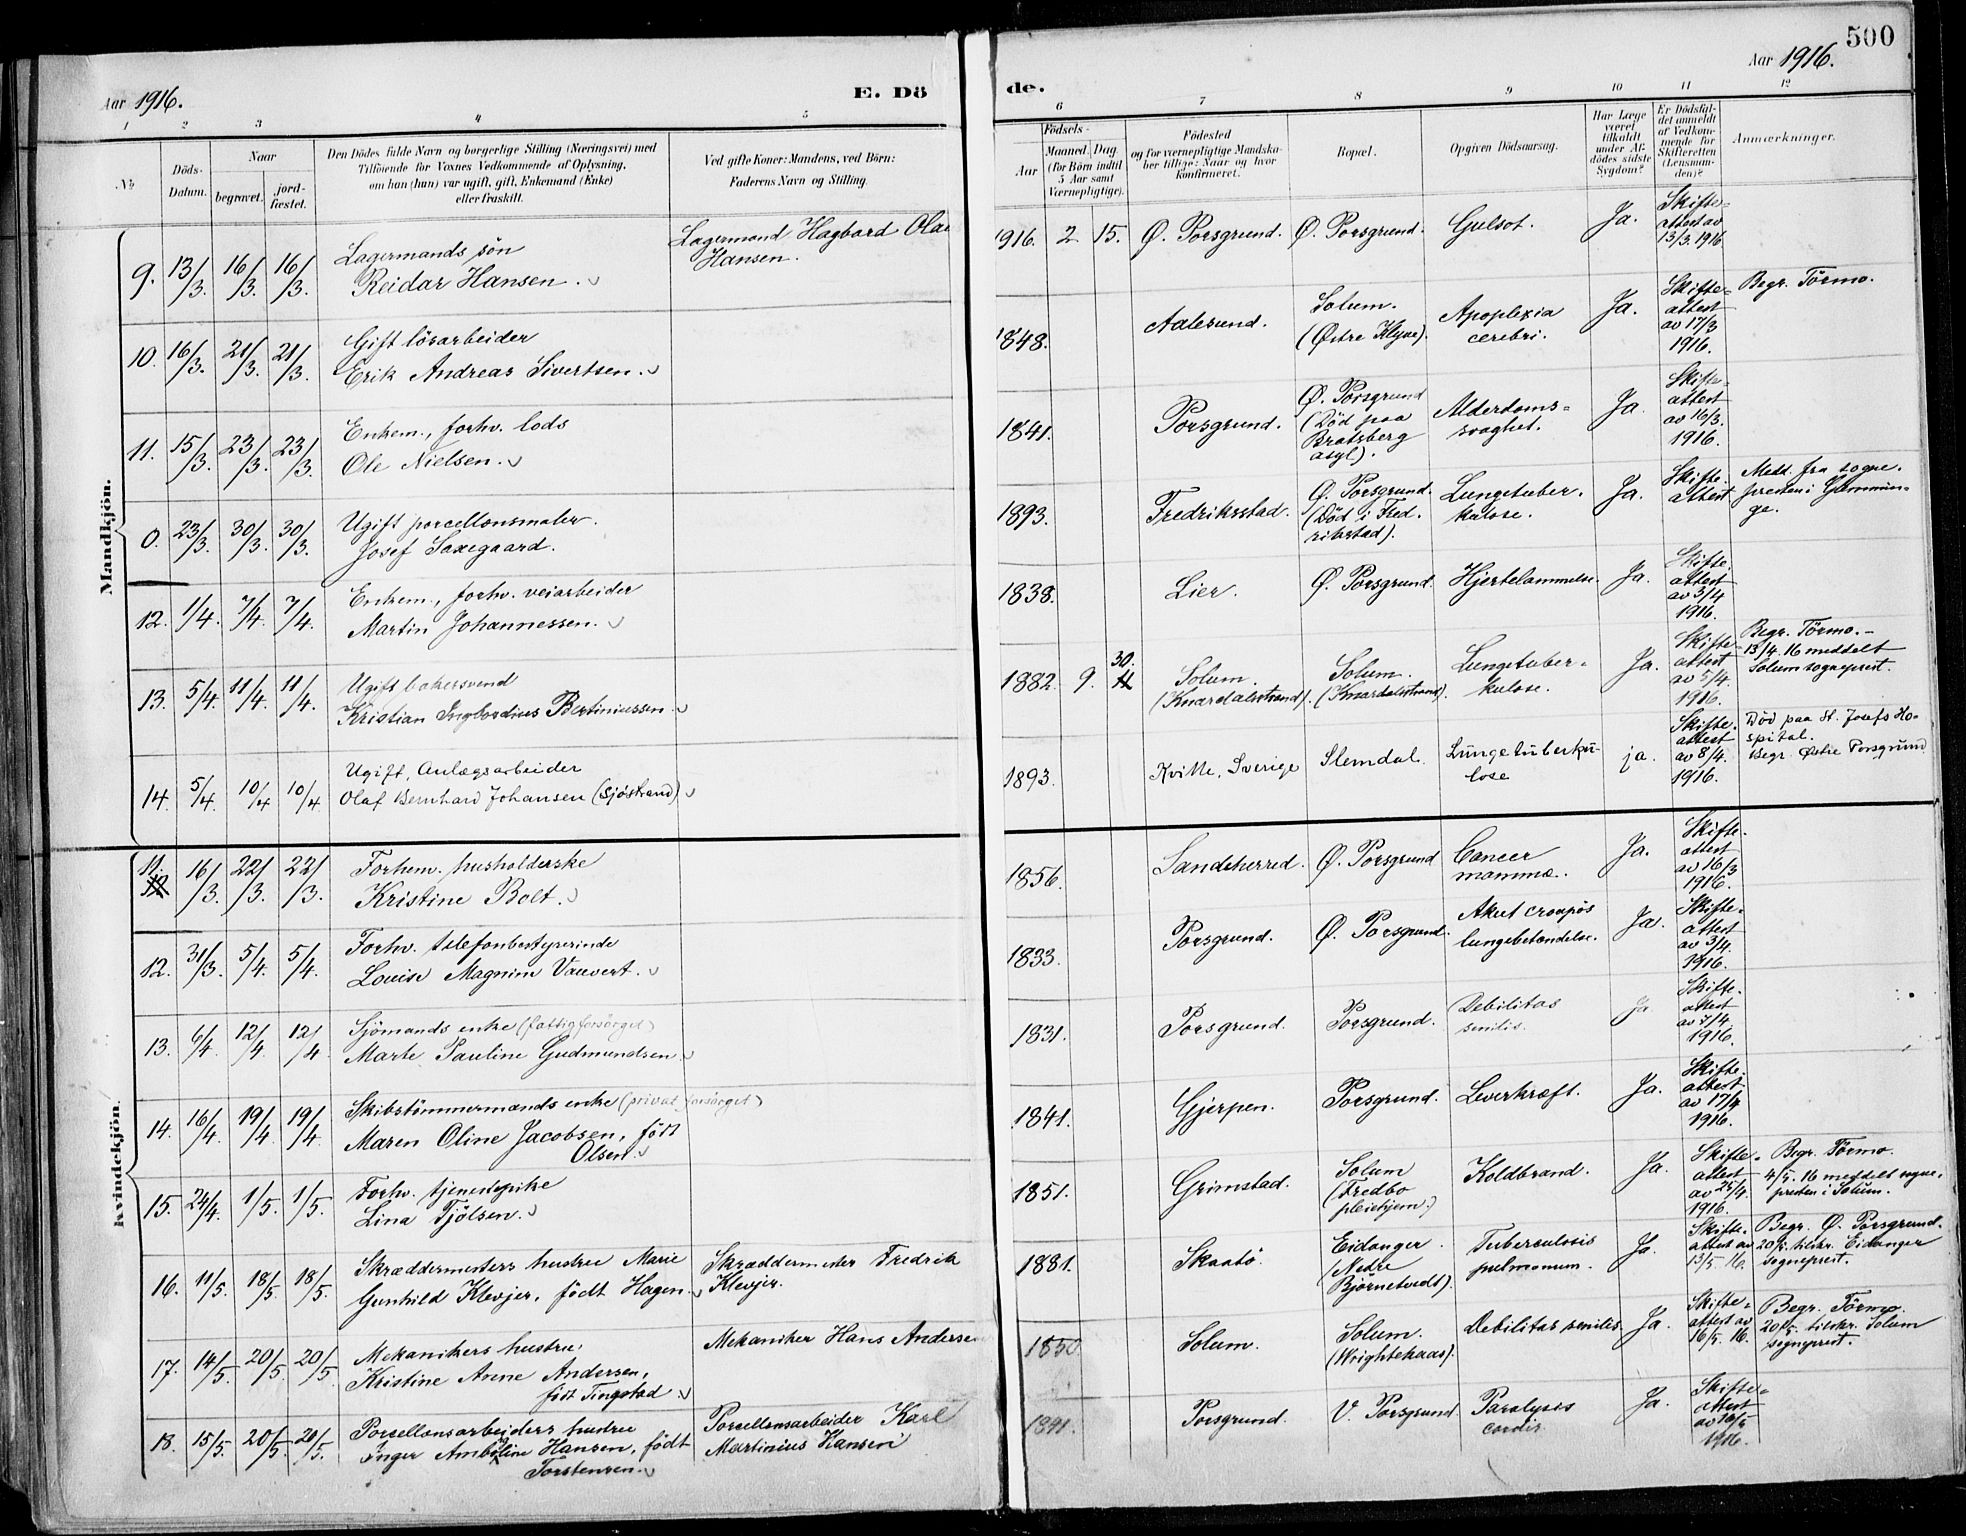 500
Aar 1916.
E. Dö
de.
Aar 1916.
1 2 3 4 5
6 7 8 9 10 11 12
No
Döds-
Datum.
Naar
begravet.
jord-
fæstet.
Den Dödes fulde Navn og borgerlige Stilling (Næringsvei) med
Tilföiende for Voxnes Vedkommende af Oplysning,
om han (hun) var ugift, gift, Enkemand (Enke)
eller fraskilt.
Ved gifte Koner: Mandens, ved Börn:
Faderens Navn og Stilling.
Födsels-
Aar
Maaned. Dag
(for Börn indtil
5 Aar samt
Værnepligtige).
Födested
og for værnepligtige Mandska-
ber tillige: Naar og hvor
konfirmeret.
Bopæl.
Opgiven Dödsaarsag.
Har Læge
været
tilkaldt
under Af-
dödes sidste
Sygdom?
Er Dödsfal-
det anmeldt
af Vedkom-
mende for
Skifteretten
(Lensman-
den)?
Anmærkninger.
Mandkjön.
9. 13/3. 16/3. 16/3.
Lagermands sön
Reidar Hansen.
Lagermand Hagbard Olai
Hansen.
1916. 2 15. Ø. Porsgrund. Ø. Porsgrund. Gulsot. Ja.
Skifte-
attest av
13/3. 1916
10. 16/3. 21/3. 21/3.
Gift lösarbeider
Erik Andreas Sivertsen.
1848. Aalesund.
Solum.
(Østre Klyve).
Apoplexia
cerebri.
Ja.
Skifte-
attest
av 17/3
1916.
Begr. Törmo.
11. 15/3. 23/3. 23/3.
Enkem., forhv. lods
Ole Nielsen.
1841. Porsgrund.
Ø. Porsgrund
(Död paa
Bratsberg
asyl).
Alderdoms-
svaghet.
Ja.
Skifte-
attest
av 16/3.
1916.
0. 23/3. 30/3. 30/3.
Ugift porcellonsmaler.
Josef Saxegaard.
1893. Fredriksstad.
Ø. Porsgrund.
(Död i Fred.
rikstad).
Lungetuber.
kulose.
Ja.
Skifte.
attest
Medd. fra sogne.
presten i Glemmin-
ge.
12. 1/4. 7/4. 7/4.
Enkem., forhv. veiarbeider
Martin Johannessen.
1838. Lier. Ø. Porsgrund. Hjertelammelse. Ja.
Skifte.
attest
av 3/4
1916.
13. 5/4. 11/4. 11/4.
Ugift bakersvend
Kristian Ingbordius Bertiniussen
1882. 9. 30.
Solum.
(Knardalsstrand).
Solum.
(Knardalsstrand).
Lungetuber-
kulose.
Ja.
Skifte-
attest
av 5/4.
1916.
Begr. Törmo.-
13/4. 16 meddelt
Solum sogneprest.
14. 5/4. 10/4 10/4
Ugift, Anlægsarbeider
Olaf Bernhard Johansen (Sjöstrand)
1893. Kville, Sverige Slemdal.
Lungetuberku-
lose
ja.
Skifte.
attest
av 8/4.
1916.
Död paa St. Josefs Ho-
spital.
Begr. Østre Porsgrund
Kvindekjön.
11. 16/3. 22/3. 22/3.
Forhem. husholderske
Kristine Bolt.
1856. Sandeherred. Ø. Porsgrund
Cancer
mamma.
Ja.
Skifte-
attest
av 16/3
1916.
12. 31/3. 5/4. 5/4.
Forhv. telefonbestyrerinde
Louise Magnim Vauvert.
1833. Porsgrund. Ø. Porsgrund.
Akut croupös
lungebetændelse.
Ja.
Skifte-
attest
av 3/4.
1916.
13. 6/4. 12/4 12/4
Sjömands enke (fattigforsörget)
Marte Pauline Gudmundsen
1831. Porsgrund. Porsgrund.
Debilitas
senilis.
Ja.
Skifte-
attest
av 7/4.
1916.
14. 16/4. 19/4 19/4
Skibstömmermands enke (privat forsörget)
Maren Oline Jacobsen, födt
Olsen.
1841. Gjerpen. Porsgrund. Leverkræft. Ja.
Skifte.
attest
av 17/4
1916.
15. 24/4. 1/5. 1/5.
Forhv. tjenestepike
Lina Tjölsen.
1851. Grimstad.
Solum
(Fredbo
pleiehjem.)
Koldbrand. Ja.
Skifte
attest
av 25/4.
1916.
Begr. Törmo.
4/5. 16 meddelt sogne.
presten i Solum.
16. 11/5. 18/5. 18/5.
Skræddermesters hustru Marie
Gunhild Klevjer, födt Hagen.
Skræddermester Fredrik
Klevjer.
1881. Skaatö.
Eidanger.
(Nedre
Bjørnetvedt).
Tuberculosis
pulmonum.
Ja.
Skifte.
attest av
13/5 16.
Begr. Ø. Porsgrund.
20/5. tilskr. Eidanger
sogneprest.
17. 14/5. 20/5. 20/5.
Mekanikers hustru
Kristine Arene Andersen,
födt Tingstad
Mekaniker Hans Andersen
1850 Solum.
Solum.
(Wrightehaas).
Debilitas senilis Ja.
Skifte-
attest av
16/5. 16.
Begr. Törmo.
20/5. tilskr. Solum
sogneprest.
18. 15/5. 20/5. 20/5.
Porcellonsarbeiders hustru
Inger Amboline Hansen, födt
Torstensen.
Porcellonsarbeider Karl
Martinius Hansen
1841. Porsgrund. V. Porsgrund
Paralysis
cordis.
Ja.
Skifte-
attest
av 16/5
1916.